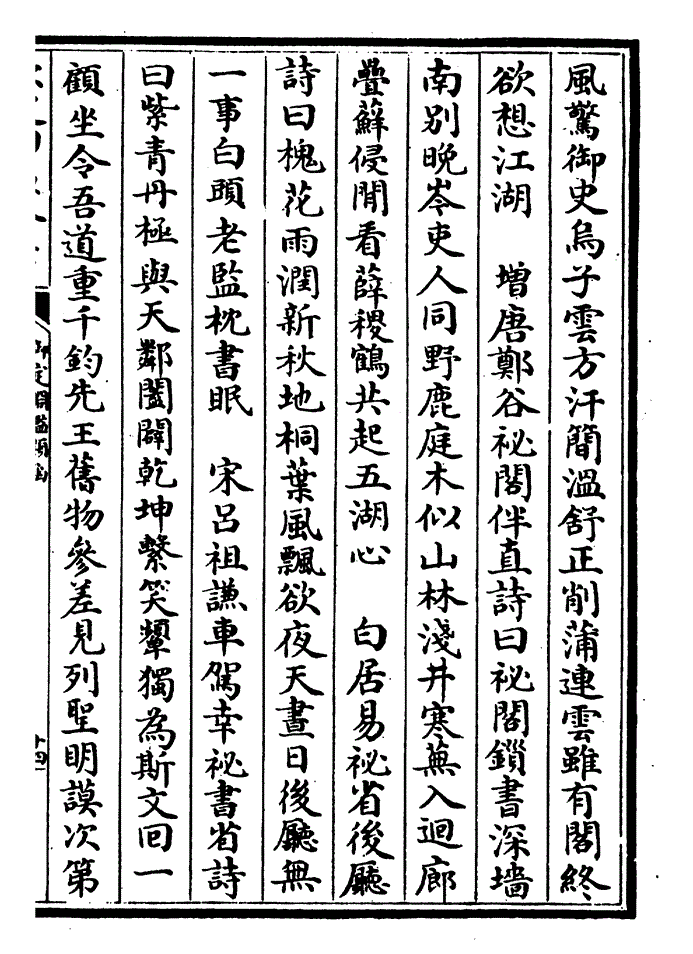 風驚御史烏子雲方汗簡溫舒正削蒲連雲雖有閣終
欲想江湖　增唐鄭谷祕閣伴直詩曰祕閣鎖書深墻
南別晚岑吏人同野鹿庭木似山林淺井寒蕪入迴廊
疊蘚侵閒看薛稷鶴共起五湖心　白居易祕省後廳
詩曰槐花雨潤新秋地桐葉風飄欲夜天晝日後廳無
一事白頭老監枕書眠　宋呂祖謙車駕幸祕書省詩
曰紫青丹極與天鄰闔闢乾坤繫笑顰獨為斯文回一
顧坐令吾道重千鈞先王舊物參差見列聖明謨次第
御定淵鑑類函
十四